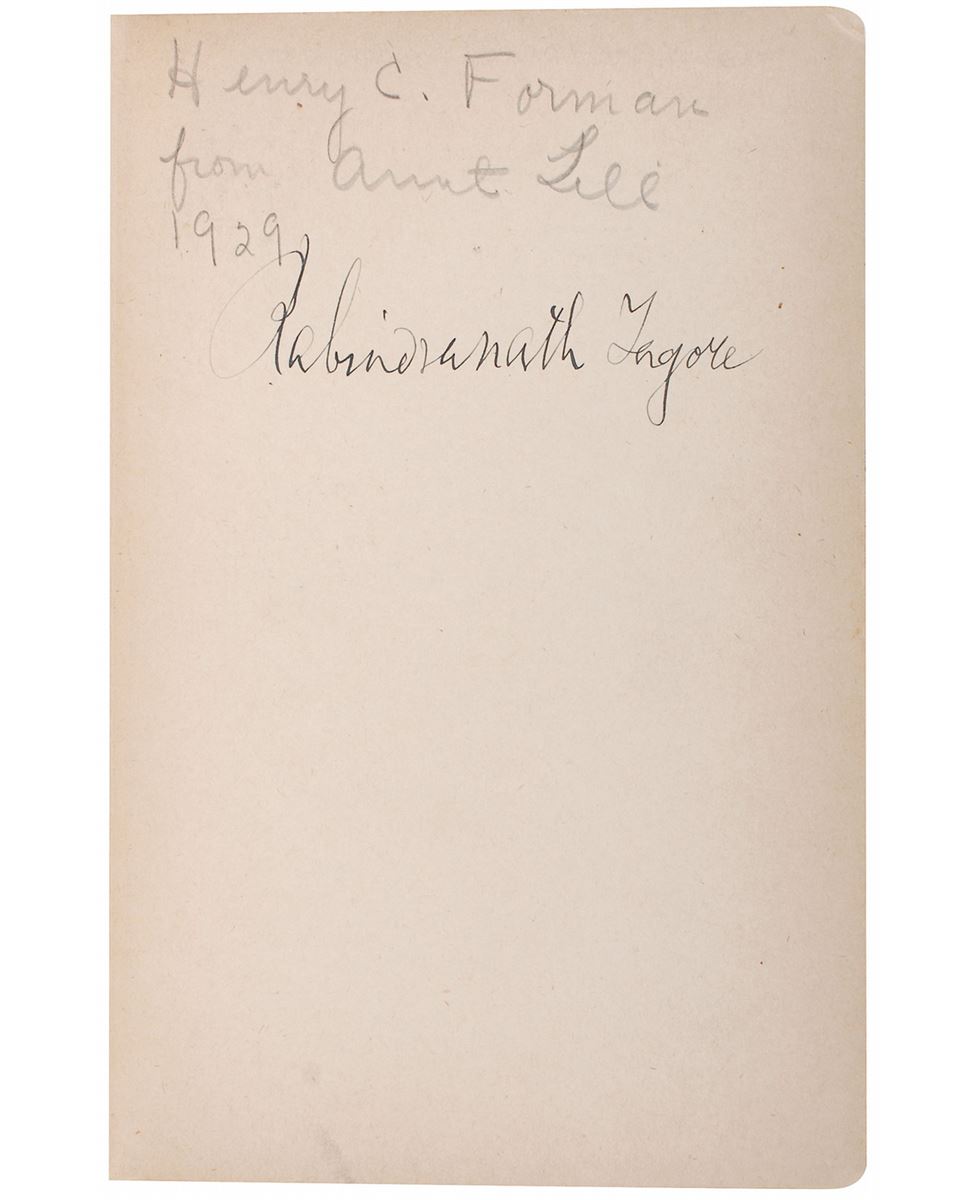 Henry C. Forman
from Aunt Lill
1929
Rabindranath Tagore